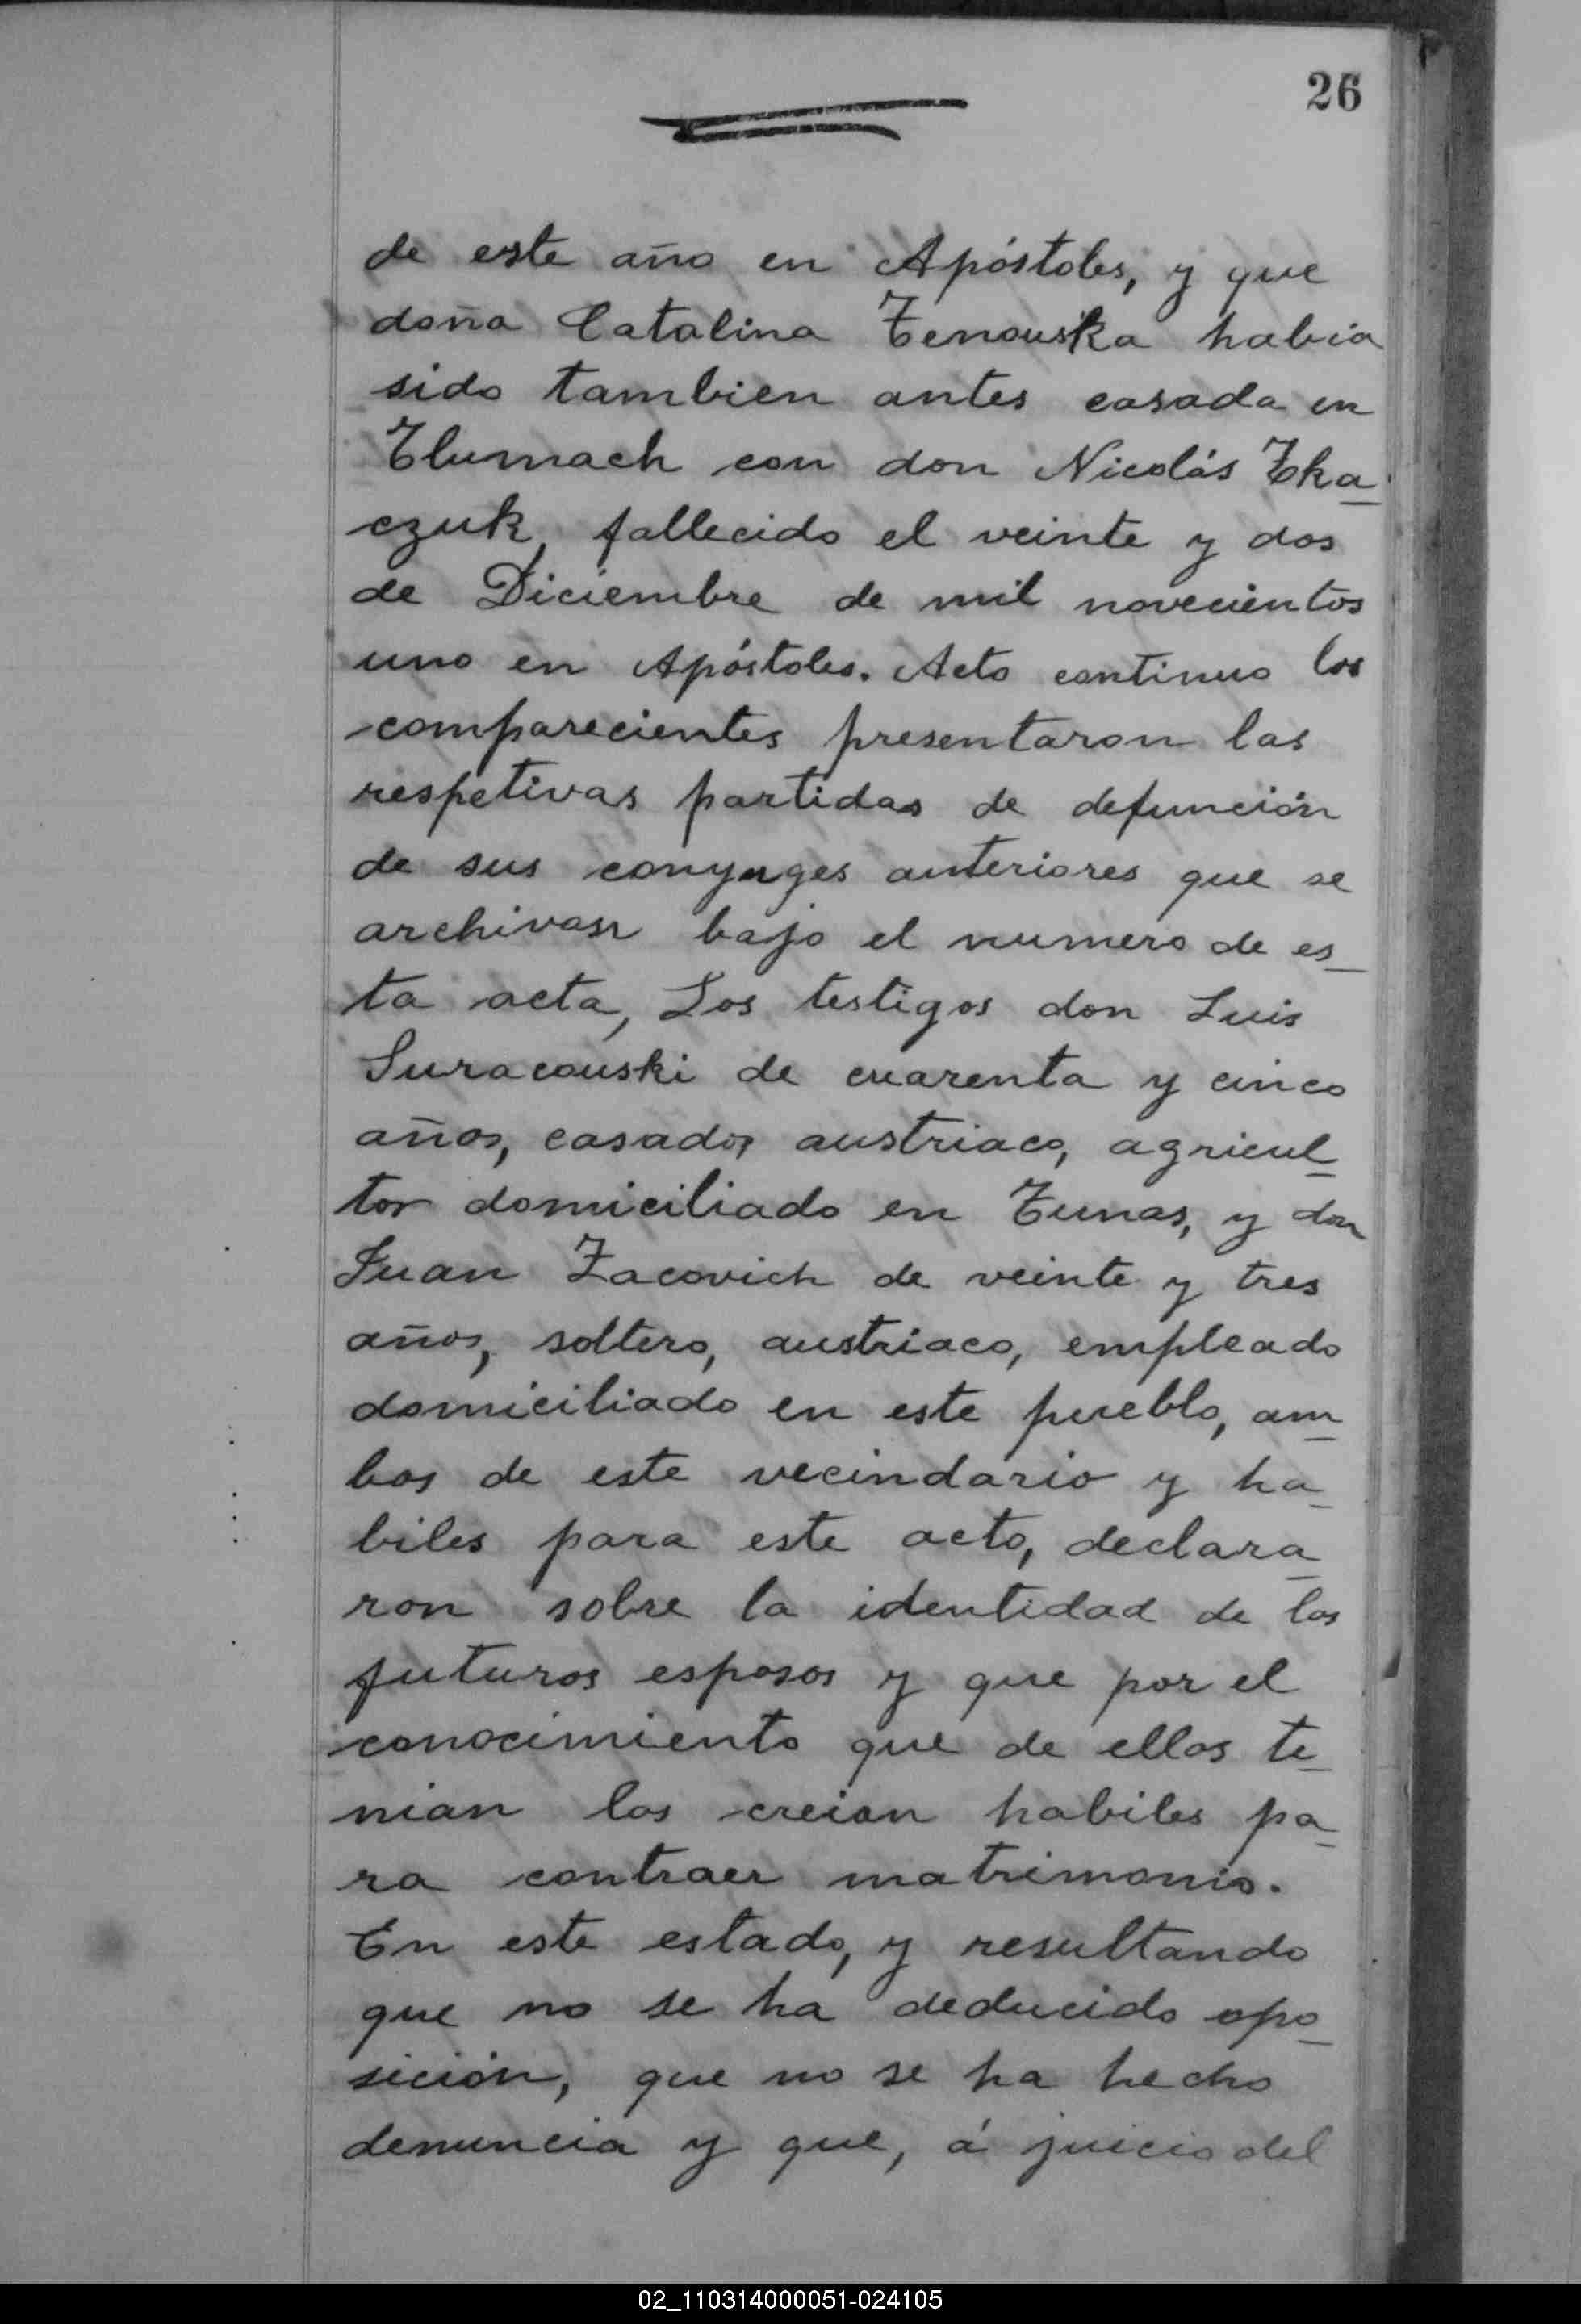 26
de este año en Apóstoles, y que
doña Catalina Tenouska habia
sido tambien antes casada en
Tlumach con don Nicolás Tka_
czuk, fallecido el veinte y dos
de Diciembre de mil novecientos
uno en Apóstoles. Acto continuo los
comparecientes presentaron las
respetivas partidas de defunción
de sus conyuges anteriores que se
archivan bajo el numero de es_
ta acta, Los testigos don Luis
Suracouski de cuarenta y cinco
años, casado, austriaco, agricul_
tor domiciliado en Tunas, y don
Juan Zacovich de veinte y tres
años, soltero, austriaco, empleado
domiciliado en este pueblo, am_
bos de este vecindario y ha_
biles para este acto, declara_
ron sobre la identidad de los
futuros esposos y que por el
conocimiento que de ellos te_
nian los creian habiles pa_
ra contraer matrimonio.
En este estado, y resultando
que no se ha deducido opo_
sición, que no se ha hecho
denuncia y que, á juicio del
02_110314000051-024105